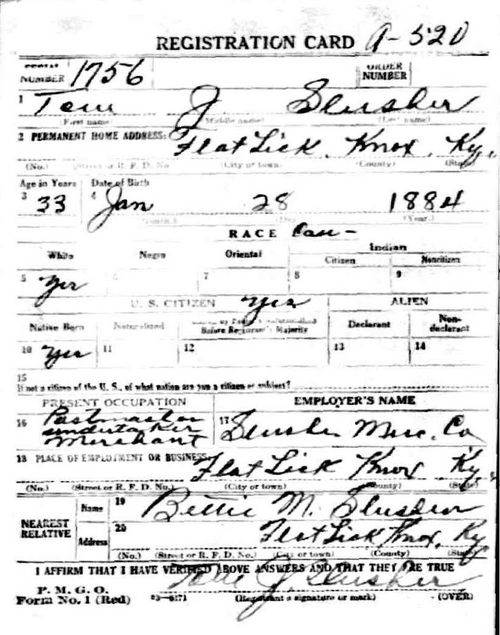 REGISTRATION CARD A-520
SERIAL NUMBER 1756 ORDER NUMBER
1 Tom J Slusher
(First name) (Middle name) (Last name)
2 PERMANENT HOME ADDRESS: Flat Lick, Knox, Ky.
(No.) (Street or R. F. D. No.) (City or town) (County) (State)
Age in Years Date of Birth
3 33 4 Jan 28 1884
(Month.) (Day.) (Year.)
RACE Cau-
White Negro Oriental Indian
Citizen Noncitizen
5 Yes 6 7 8 9
U. S. CITIZEN Yes ALIEN
Native Born Naturalized Before Registrant's Majority Declarant Non-declarant
10 Yes 11 12 13 14
15
If not a citizen of the U. S., of what nation are you a citizen or subject?
PRESENT OCCUPATION EMPLOYER'S NAME
16 Postmaster undertaker Merchant 17 Slusher Merc. Co
18 PLACE OF EMPLOYMENT OR BUSINESS: Flat Lick Knox Ky.
(No.) (Street or R. F. D. No.) (City or town) (County) (State)
NEAREST RELATIVE Name 19 Bettie M. Slusher
Address 20 Flat Lick Knox, Ky
(No.) (Street or R. F. D. No.) (City or town) (County) (State)
I AFFIRM THAT I HAVE VERIFIED ABOVE ANSWERS AND THAT THEY ARE TRUE
P. M. G. O.
Form No. 1 (Red) J. Slusher
(Registrant's signature or mark) (OVER)